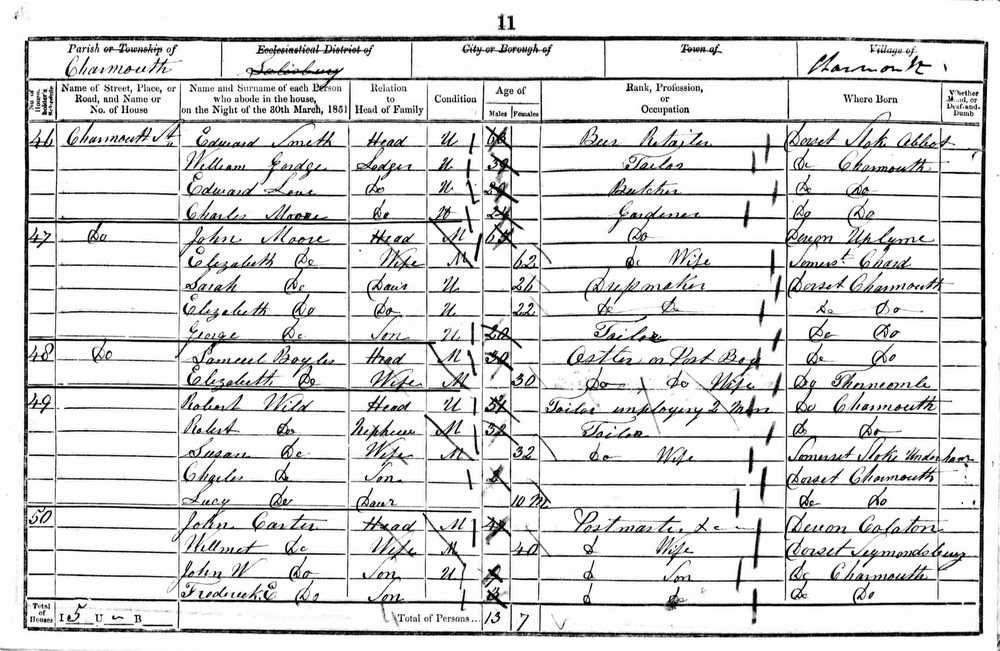 11
Parish or Township of Ecclesiastical District of City or Borough of Town of Village of
Charmouth Salisbury Charmouth
No. of House-holder's Schedule Name of Street, Place, or Road, and Name or No. of House Name and Surname of each Person who abode in the house, on the Night of the 30th March, 1851 Relation to Head of Family Condition Age of Males Females Rank, Profession, or Occupation Where Born Whether Blind, or Deaf-and-Dumb
46 Charmouth St Edward Smith Head U Beer Retailer Dorset Stoke Abbot
William Gordge Lodger U 39 Tailor Do Charmouth
Edward Love Do U 29 Butcher Do Do
Charles Moore Do U 24 Gardener Do Do
47 Do John Moore Head M Do Devon Uplyme
Elizabeth Do Wife M 62 Do Wife Somerst Chard
Sarah Do Daur U 26 Dressmaker Dorset Charmouth
Elizabeth Do Do U 22 Do Do Do Do
George Do Son U 20 Tailor Do Do
48 Do Samuel Boyles Head M 30 Ostler or Post Boy Do Do
Elizabeth Do Wife M 30 Do Do Wife Do Thorncomb
49 Robert Wild Head U Tailor employing 2 Men Do Charmouth
Robert Do Nephew M 32 Tailor Do Do
Susan Do Wife M 32 Do Wife Somerset Stoke Under
Charles Do Son Dorset Charmouth
Lucy Do Daur 10 M Do Do
50 John Carter Head M Postmaster &c Devon Colaton
Willmet Do Wife M 40 Do Wife Dorset Symondsbury
John W Do Son U Do Son Do Charmouth
Frederick E Do Son Do Do Do Do
Total of Houses I 5 U B Total of Persons ... 13 7